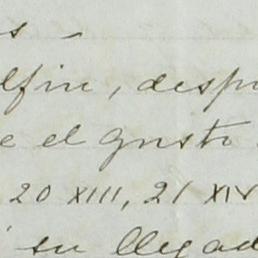 s -
lfin, despu
e el gusto
20 XIII, 21 XIV
su llegad